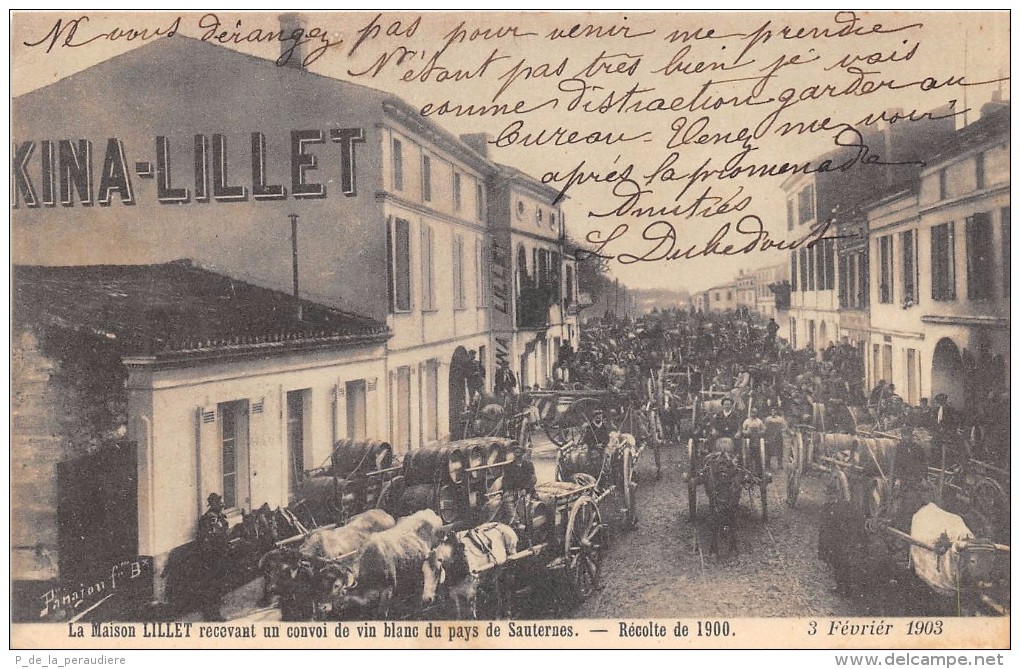 Ne vous dérangez pas pour venir me prendre
N'étant pas très bien je vais
comme distraction garder au
bureau - Venez me voir
après la promenade
Amitiés
L Dubedout
KINA-LILLET
KINA LILLET
Panajou fres Bx
La Maison LILLET recevant un convoi de vin blanc du pays de Sauternes. — Récolte de 1900.
3 Févriér 1903
P_de_la_peraudiere
www.delcampe.net